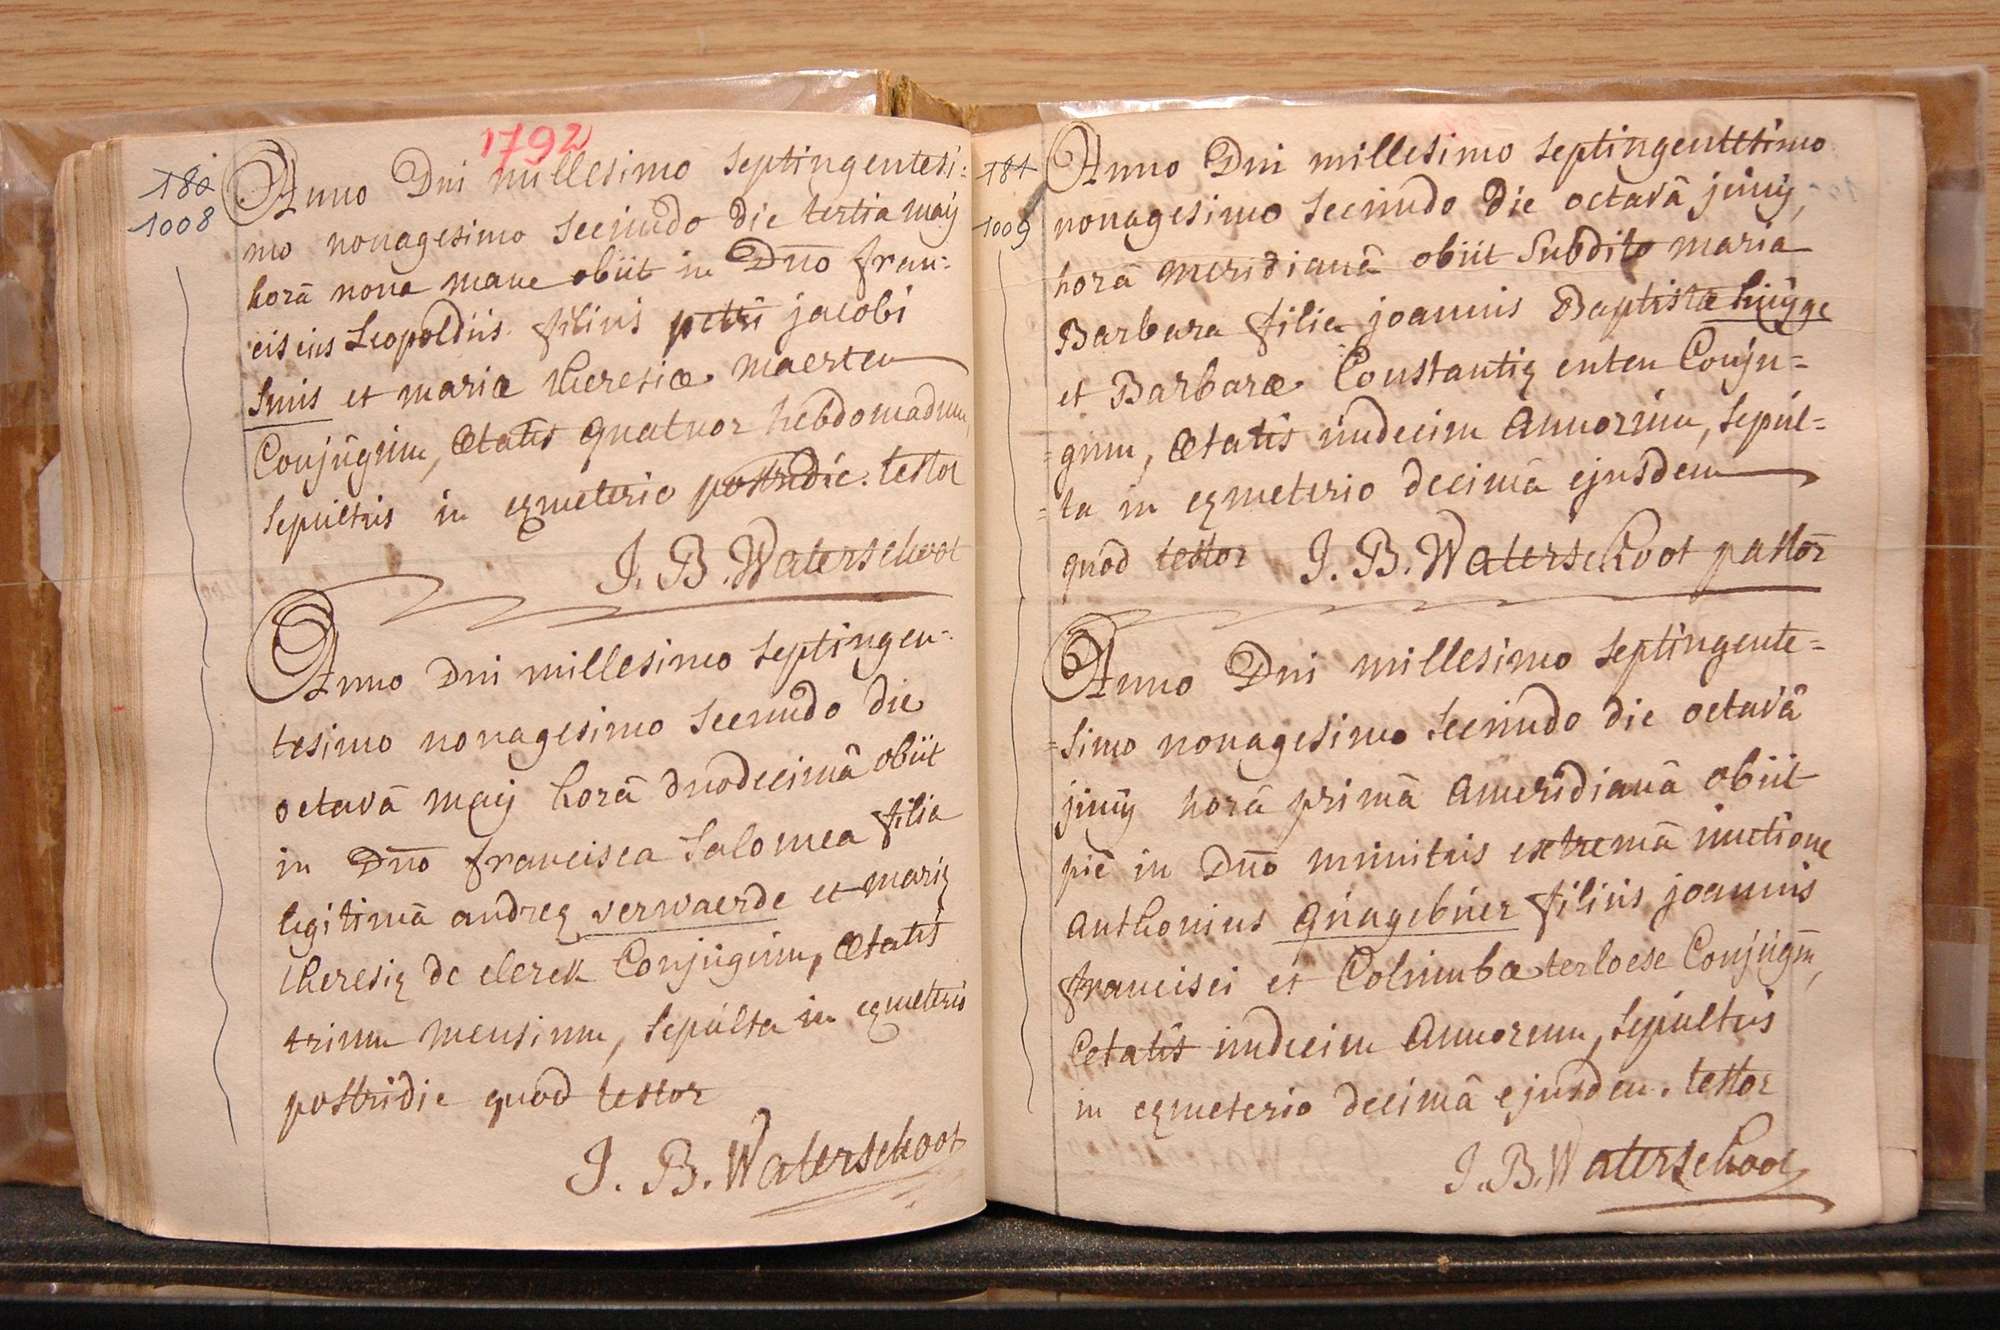 1792
180
1008
Anno Dni millesimo septingentesi=
mo nonagesimo secundo die tertia maij
horâ nona mane obiit in Dno fran=
ciscus Leopoldus filius petri jacobi
Smis et mariæ theresiæ maerten
Conjugum, ætatis quatuor hebdomadum
sepultus in cæmeterio postridie. testor
J. B. Waterschoot
Anno Dni millesimo septingen=
tesimo nonagesimo secundo die
octavâ maij horâ duodecimâ obiit
in Dno francisca Salomea filia
legitimâ andreæ verwaerde et mariæ
theresiæ de clerck Conjugum, ætatis
trium mensium, sepulta in cæmeterio
postridie quod testor
J. B. Waterschoot
181
1009
Anno Dni millesimo septingentesimo
nonagesimo secundo die octavâ junij,
horâ meridianâ obiit subditο maria
Barbara filia joannis Baptistæ huijge
et Barbaræ Constantiæ enten Conju=
=gum, ætatis undecim annorum, sepul=
=ta in cæmeterio decimâ ejusdem
quod testor J. B. Waterschoot pastor
Anno Dni millesimo septingente=
=simo nonagesimo secundo die octavâ
junij horâ primâ ameridianâ obiit
piè in Dno munitus extremâ unctione
anthonius quagebuer filius joannis
francisci et Columbæ terloese Conjugm,
ætatis undecim annorum, sepultus
in cæmeterio decimâ ejusdem. testor
J. B. Waterschoot